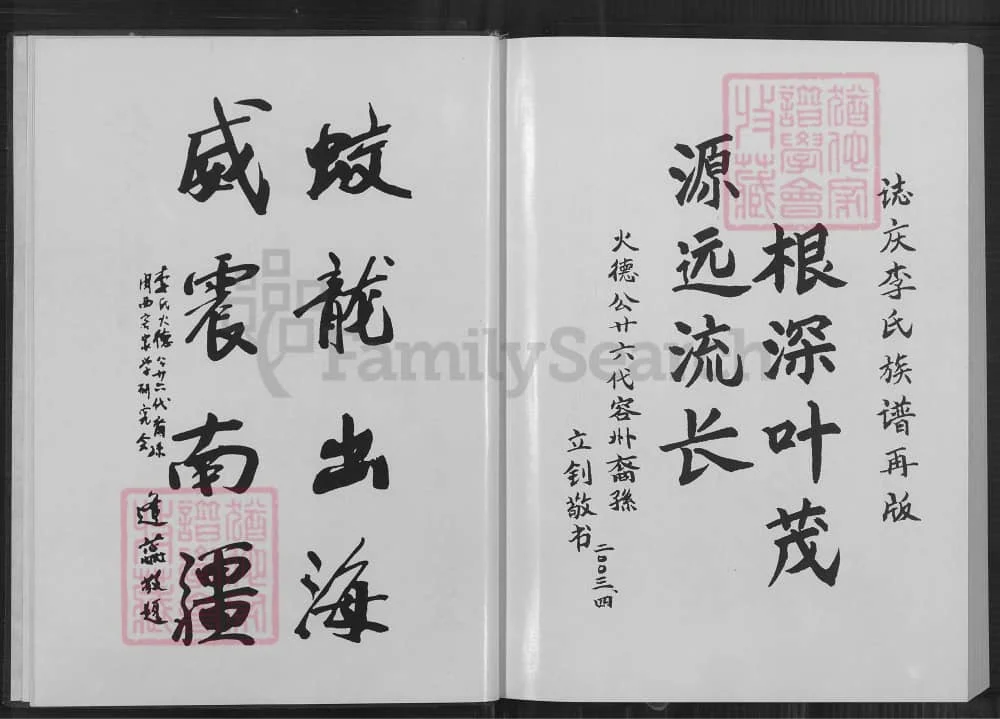 誌庆李氏族谱再版
根深叶茂
源远流长
火德公廿六代容州裔孫
立钊敬书
二00三.四
蛟龍出海
威震南疆
李氏火德公廿六代裔孫
闽西客家学研究会
逢蕊敬題
猶他家
譜學會
收藏
猶他家
譜學會
收藏
FamilySearch